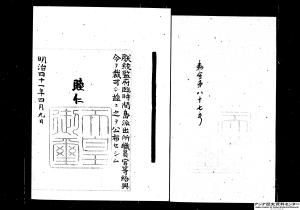 勅令第八十七号
朕統監府臨時間島派出所職員官等給與
令ヲ裁可シ茲ニ之ヲ公布セシム
睦仁
天皇
御璽
明治四十一年四月九日
アジア歴史資料センター